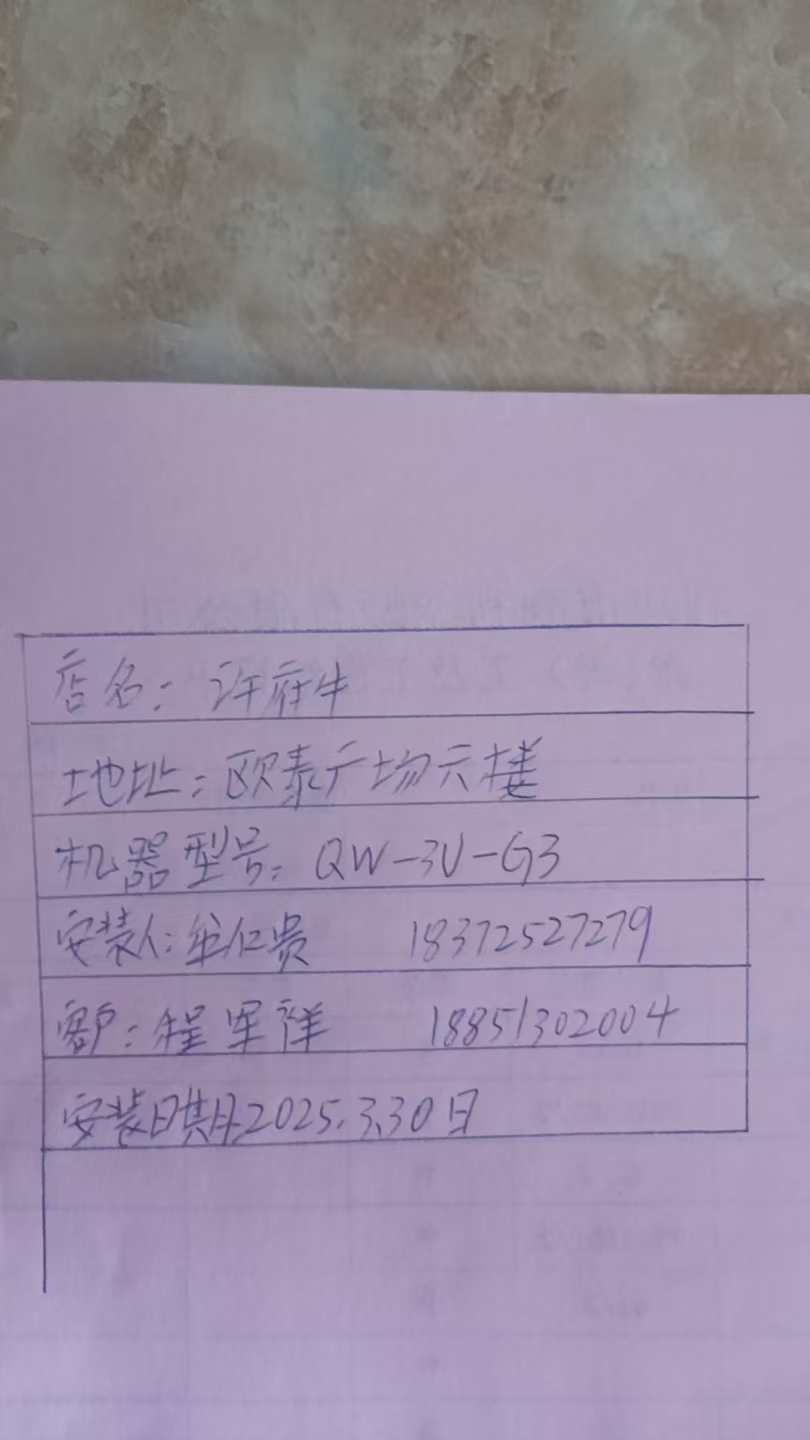 店名：许府牛
地址：欧泰广场六楼
机器型号：QW-3U-G3
安装人：仁贵 18372527279
客户：程军祥 18851302004
安装日期2025.3.30日